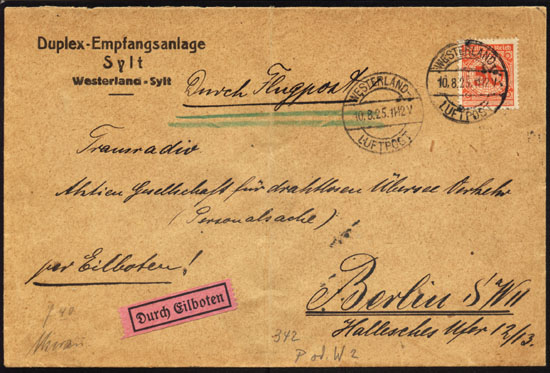 Duplex-Empfangsanlage
Sylt
Westerland-Sylt
Durch Flugpost
WESTERLAND
10.8.25.11-12V
LUFTPOST
WESTERLAND
10.8.25.11-12V
LUFTPOST
Transradio
Aktien Gesellschaft für drahtlosen Übersee Verkehr
(Personalsache)
per Eilboten!
Durch Eilboten
Berlin S.W 11
Hallesches Ufer 12/13.
342